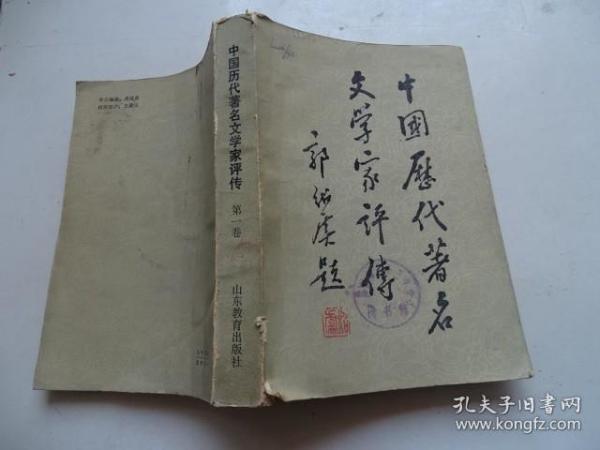 中國歷代著名
文学家評傳
郭紹虞題
中国历代著名文学家评传
第一卷
山东教育出版社
图书馆
孔夫子旧书网
www.kongfz.com